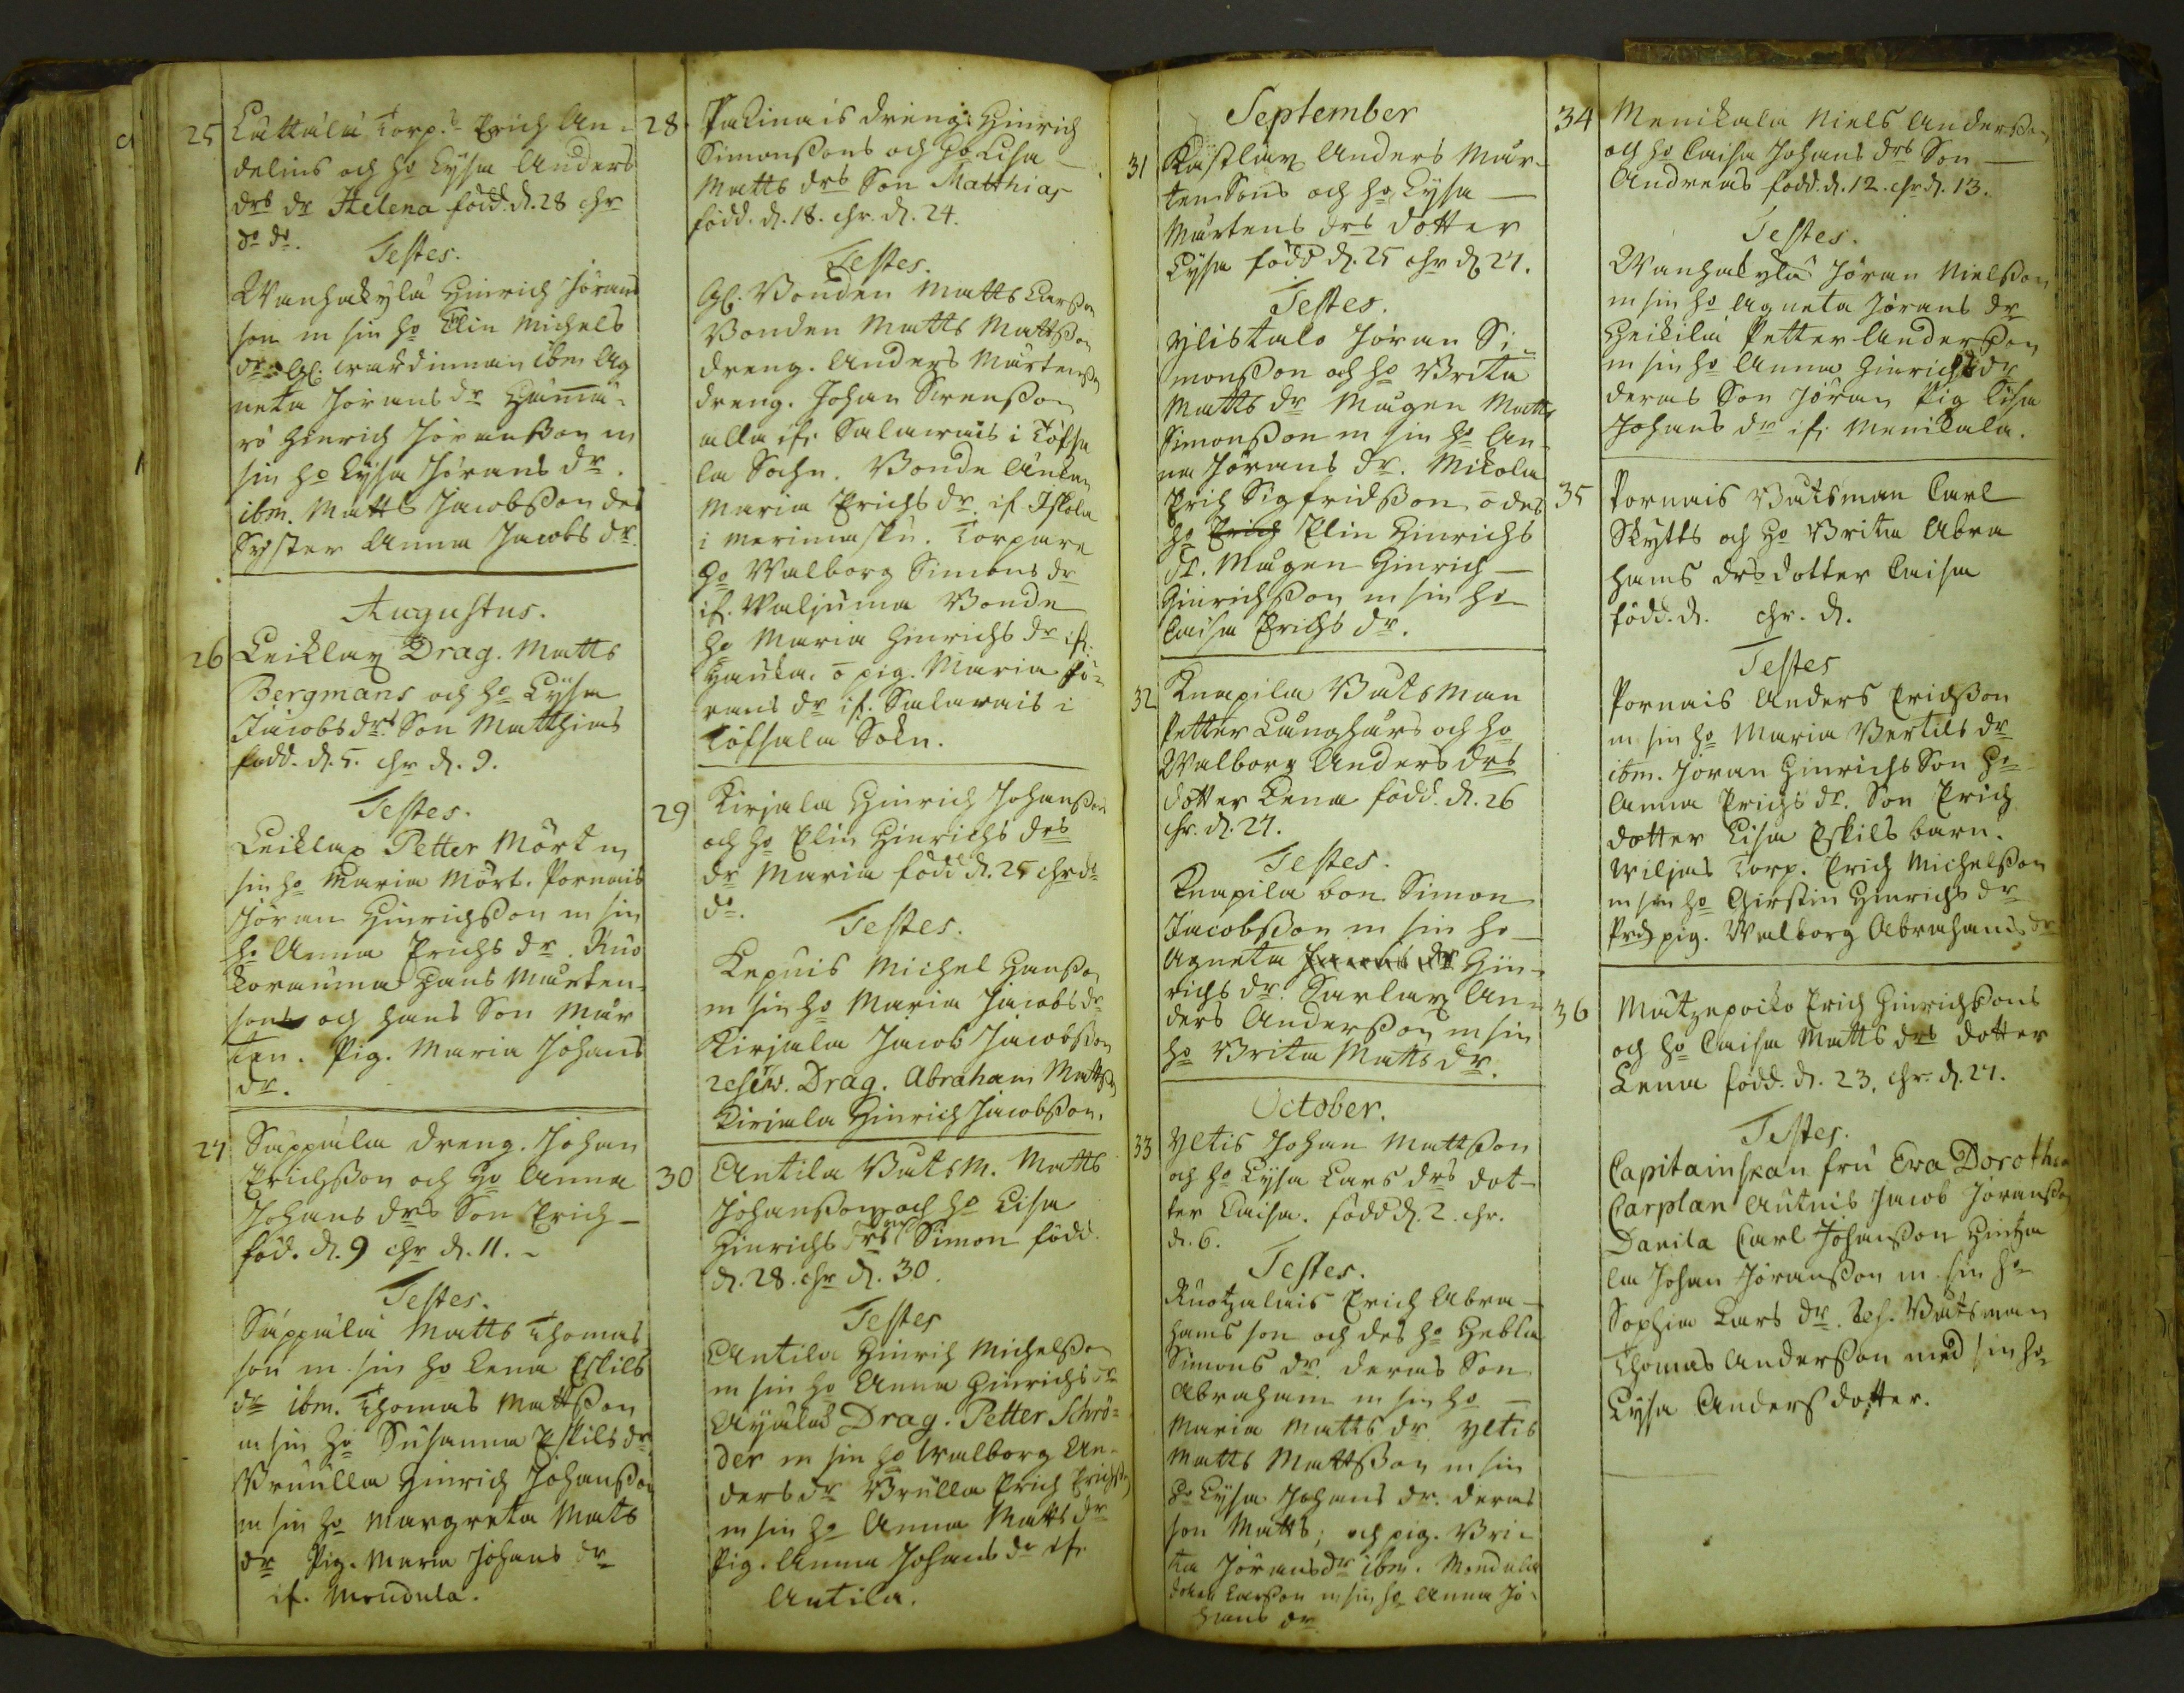 25 Luttula Torp.r Erich An-
delins och ho Lysa Anders
drs dr Helena född. d. 28 chr
do do.
Testes.
Wanhakylä Hinrich Jörans
son m sin ho Elin Michels
dr Gl. wärdinnan ibm Ag
neta Jörans dr
rö Hinrich Jöransson m
sin ho Lysa Jörans dr.
ibm. Matts Jacobsson des
Syster Anna Jacobs dr.
Augustus.
26 Leiklax Drag. Matts
Bergmans och ho Lysa
Jacobs drs Son Matthias
född. d. 5. chr d. 9.
Testes.
Leiklax Petter Mört m
sin ho Maria Mört. Pornais
Jöran Hinrichsson m sin
ho Anna Erichs dr. Ruo
korauma Hans Mårten-
sons och hans Son Mår
ten. Pig. Maria Johans
dr.
27 Sappula dreng. Johan
Erichsson och ho Anna
Johans drs Son Erich
föd. d. 9 chr d. 11.
Testes.
Sappula Matts Thomas
son m. sin ho Lena Eskils
dr ibm. Thomas Mattsson
m sin ho Susanna Eskils dr
Bruulla Hinrich Johansson
m sin ho Margreta Mats
dr Pig. Maria Johans dr
if. Mondula.
28 Pakinais dreng. Hinrich
Simonssons och ho Lisa
Matts drs Son Matthias
född. d. 18. chr. d. 24.
Testes.
Gl. Bonden Matts Larsson
Bonden Matts Mattsson
dreng. Anders Mårtensson
dreng. Johan Svensson
alla ifr Salavais i Töfsa
la Sochn. Bonde Änkan
Maria Erichs dr. if
i Merimasku. Torpare
ho Walborg Simons dr
if. Bonde
ho Maria Hinrichs dr if.
o pig. Maria Jö-
rans dr if. Salavais i
Töfsala Sokn.
29 Kirjala Hinrich Johansson
och ho Elin Hinrichs drs
dr Maria född d. 25 chr do
do.
Testes.
Lepuis Michel Hansson
m sin ho Maria Jacobs dr
Kirjala Jacob Jacobsson
reserv. Drag. Abraham Mattsson
Kirjala Hinrich Jacobsson.
30 Antila Båtsm. Matts
Johansson och ho Lisa
Hinrichs drs Simon född.
d. 28. chr d. 30.
Testes
Antila Hinrich Michelsson
m sin ho Anna Hinrichs dr
Äyälä Drag. Petter Schrö-
der m sin ho Walborg An-
ders dr Brulla Erich Erichsson
m sin ho Anna Matts dr
Pig. Anna Johans dr ifr
Antila.
September
31 Käslax Anders Mår-
tensons och ho Lysa
Mårtens drs dotter
Lysa född d. 25 chr d 27.
Testes.
Ylistalo Jöran Si-
monsson och ho Brita
Matts dr Mågen Matts
Simonsson m sin ho An-
na Jörans dr. Mikola
Erich Sigfridsson o des
ho Erich Elin Hinrichs
dr. Mågen Hinrich
Hinrichsson m sin ho
Caisa Erichs dr.
32 Knapila Båtsman
Petter Långhårs och ho
Walborg Anders drs
dotter Lena född. d. 26
chr. d. 27.
Testes.
Knapila bon. Simon
Jacobsson m sin ho
Agneta Hin-
richs dr. Sarlax An-
ders Andersson m sin
ho Brita Matts dr.
October.
33 Yltis Johan Mattsson
och ho Lysa Lars drs dot-
ter Caisa. född d. 2. chr.
d. 6.
Testes.
Ruotzalais Erich Abra-
hams son och des ho Hebla
Simons dr. deras Son
Abraham m sin ho
Maria Matts dr. Yltis
Matts Mattsson m sin
ho Lysa Johans dr. deras
son Matts; och pig. Bri-
ta Jörans dr ibm. Mondula
Johan Larsson m sin ho Anna Jo-
hans dr
34 Menikala Niels Andersson
och ho Caisa Johans drs Son
Andreas född. d. 12. chr d. 13.
Testes.
Wanhakylä Jöran Nielsson
m sin ho Agneta Jörans dr
Heikilä Petter Andersson
m sin ho Anna Hinrichs dr
deras Son Jöran Pig Lisa
Johans dr if. Menikala.
35 Pornais Båtsman Carl
Skytts och ho Brita Abra
hams drs dotter Caisa
född. d. chr. d.
Testes
Pornais Anders Erichsson
m sin ho Maria Bertils dr
ibm. Jöran Hinrichs Son ho
Anna Erichs dr. Son Erich
dotter Lisa Eskils barn.
Wiljas Torp. Erich Michelsson
m sin ho Chirstin Hinrichs dr
pig. Walborg Abrahams dr
36 Matzepoiko Erich Hinrichssons
och ho Caisa Matts drs dotter
Lena född. d. 23. chr. d. 27.
Testes.
Capitainskan fru Eva Dorothea
Carplan Autnis Jacob Jöransson
Danila Carl Johansson Hintza
la Johan Jöransson m. sin ho
Sophia Lars dr. Res. Båtsman
Thomas Andersson med sin ho
Lysa Andersdotter.